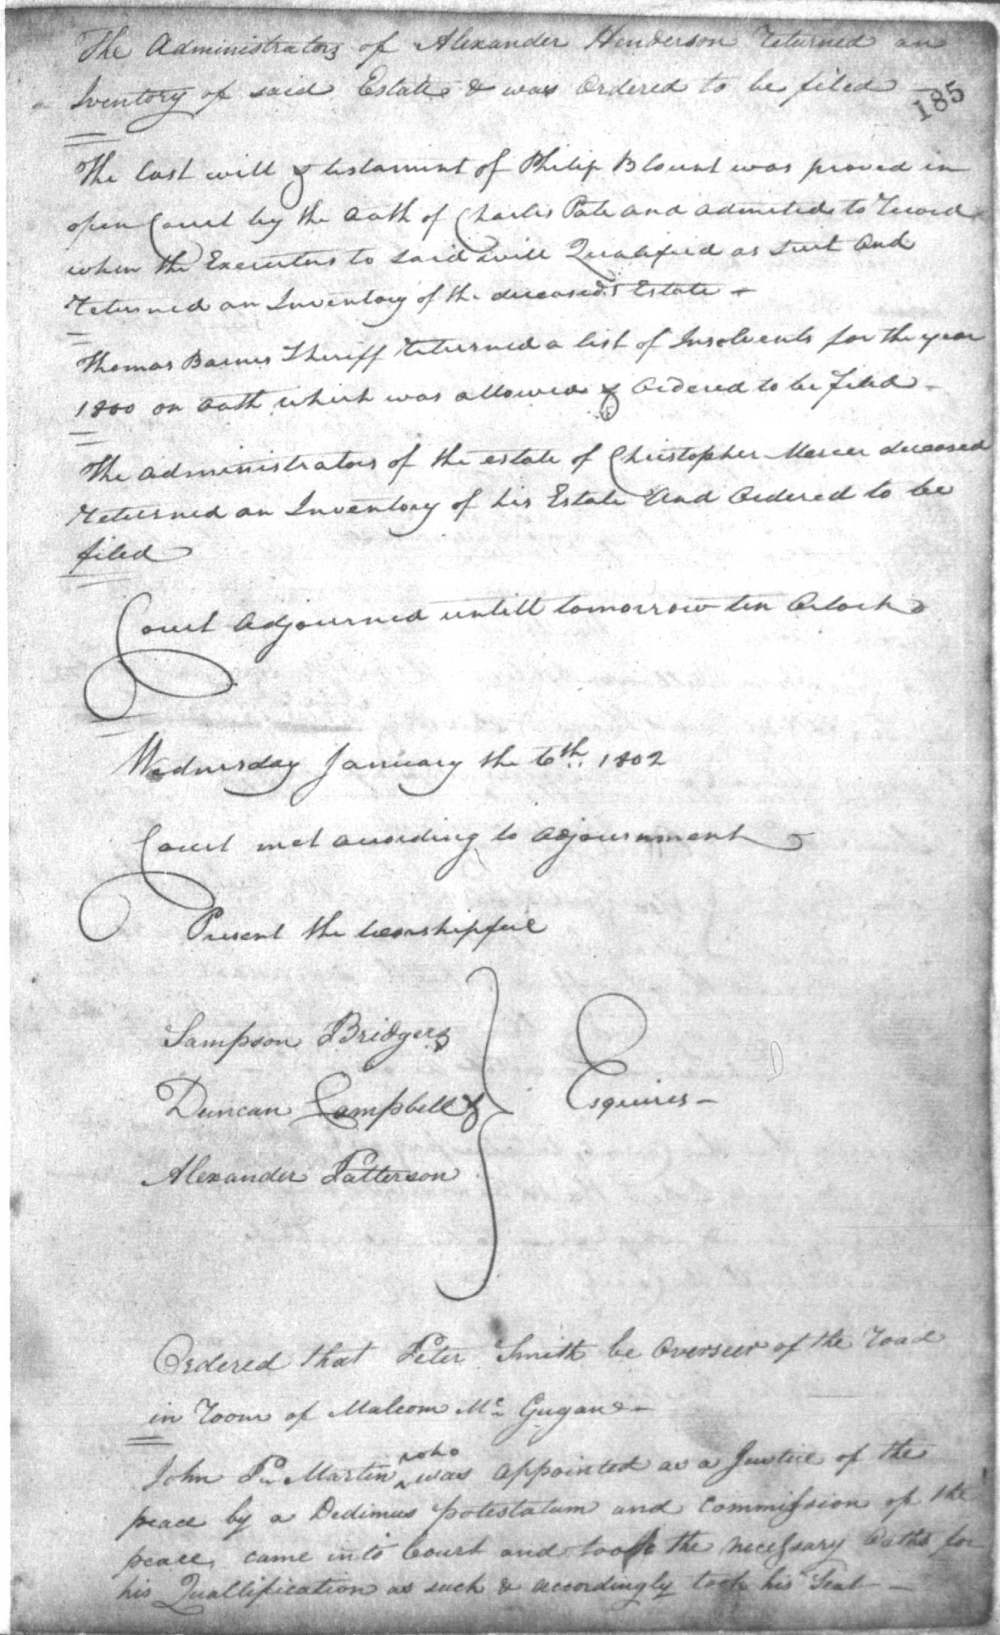 The Administrators of Alexander Henderson returned an
Iventory of said Estate & was Ordered to be filed —
185
The last will & testament of Philip Blount was proved in
open Court by the Oath of Charles Pate and admited to record
when the Executors to said will Qualified as such And
returned an Inventory of the deceased's Estate —
Thomas Barnes Sheriff returned a list of Insolvents for the year
1800 on Oath which was allowed & Ordered to be filed —
The Administrators of the estate of Christopher Mercer deceased
returned an Inventory of his Estate And Ordered to be
filed
Court Adjourned untill tomorrow ten Oclock
Wednesday January the 6th 1802
Court met according to adjournment
Present the worshipfull
Sampson Bridgers
Duncan Campbell &
Alexander Patterson
Esquires —
Ordered that Peter Smith be Overseer of the road
in room of Malcom Mc Gugan —
who
John P. Martin was appointed as a Justice of the
peace by a Dedimus potestatum and Commission of the
peace, came into Court and took the necessary Oaths for
his Quallification as such & accordingly took his Seat —